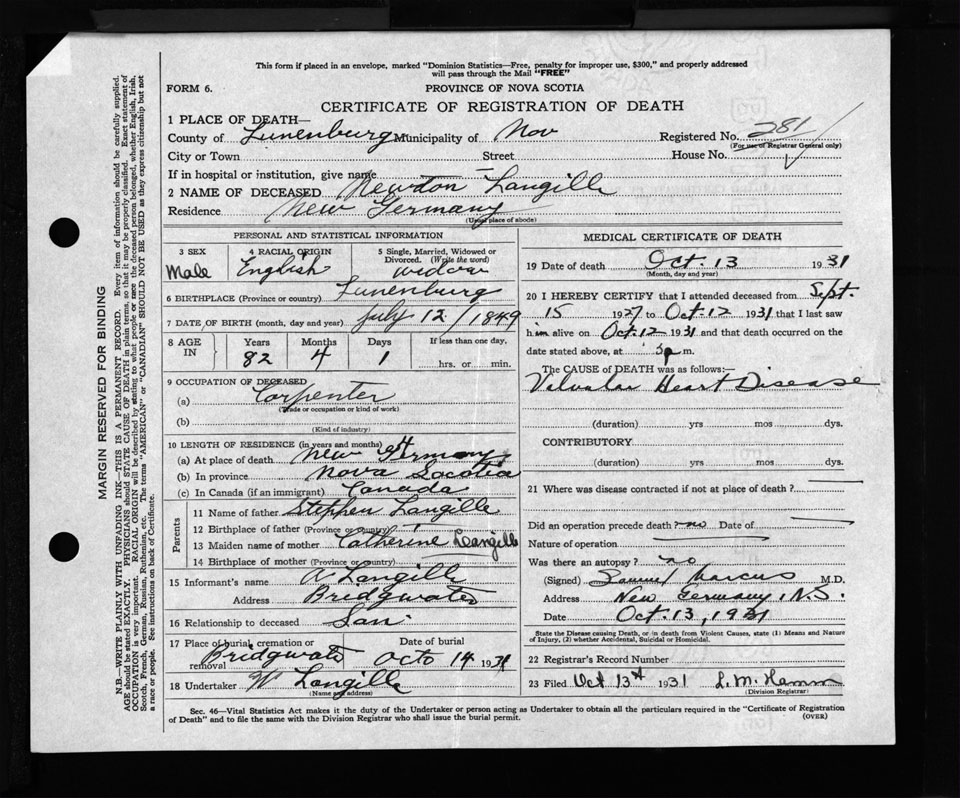 This form if placed in an envelope, marked "Dominion Statistics—Free, penalty for improper use, $300," and properly addressed
will pass through the Mail "FREE"
FORM 6.
PROVINCE OF NOVA SCOTIA
CERTIFICATE OF REGISTRATION OF DEATH
1 PLACE OF DEATH—
County of Lunenburg Municipality of Nov Registered No. 281
(For use of Registrar General only)
City or Town Street House No.
If in hospital or institution, give name
2 NAME OF DECEASED Newton Langille
Residence New Germany
(Usual place of abode)
PERSONAL AND STATISTICAL INFORMATION
3 SEX 4 RACIAL ORIGIN 5 Single, Married, Widowed or
Divorced. (Write the word)
Male English widow
6 BIRTHPLACE (Province or country) Lunenburg
7 DATE OF BIRTH (month, day and year) July 12/1849
8 AGE IN Years Months Days If less than one day,
82 4 1 hrs. or min.
9 OCCUPATION OF DECEASED
(a) Carpenter
(Trade or occupation or kind of work)
(b)
(Kind of industry)
10 LENGTH OF RESIDENCE (in years and months)
(a) At place of death New Germany
(b) In province Nova Sacotia
(c) In Canada (if an immigrant) Canada
Parents
11 Name of father Stephen Langille
12 Birthplace of father (Province or country)
13 Maiden name of mother Catherine Langille
14 Birthplace of mother (Province or country)
15 Informant's name A Langille
Address Bridgwater
16 Relationship to deceased San
17 Place of burial, cremation or removal Bridgwater Date of burial Octo 14 1931
18 Undertaker W Langille
(Name and address)
MEDICAL CERTIFICATE OF DEATH
19 Date of death Oct. 13 1931
(Month, day and year)
20 I HEREBY CERTIFY that I attended deceased from Sept.
15 1927 to Oct. 12 1931 that I last saw
him alive on Oct. 12 1931 and that death occurred on the
date stated above, at 3 pm.
The CAUSE OF DEATH was as follows:—
Valvular Heart Disease
(duration) yrs mos dys.
CONTRIBUTORY
(duration) yrs mos. dys.
21 Where was disease contracted if not at place of death?
Did an operation precede death? no Date of
Nature of operation
Was there an autopsy? no
(Signed) Samuel Marcus M.D.
Address New Germany, N.S.
Date Oct. 13, 1931
State the Disease causing Death, or in death from Violent Causes, state (1) Means and Nature
of Injury, (2) whether Accidental, Suicidal or Homicidal.
22 Registrar's Record Number
23 Filed Oct 13th 1931 L. M. Hamm
(Division Registrar)
Sec. 46—Vital Statistics Act makes it the duty of the Undertaker or person acting as Undertaker to obtain all the particulars required in the "Certificate of Registration
of Death" and to file the same with the Division Registrar who shall issue the burial permit.
(OVER)
MARGIN RESERVED FOR BINDING
N.B.—WRITE PLAINLY WITH UNFADING INK—THIS IS A PERMANENT RECORD. Every item of information should be carefully supplied.
AGE should be stated EXACTLY. PHYSICIANS should STATE CAUSE OF DEATH in plain terms, so that it may be properly classified. Exact statement of
OCCUPATION is very important. RACIAL ORIGIN will be described by stating to what people or race the deceased person belonged, whether English, Irish,
Scotch, French, German, Russian, Ruthenian, etc. The terms "AMERICAN" or "CANADIAN" SHOULD NOT BE USED as they express citizenship but not
a race or people. See instructions on back of Certificate.